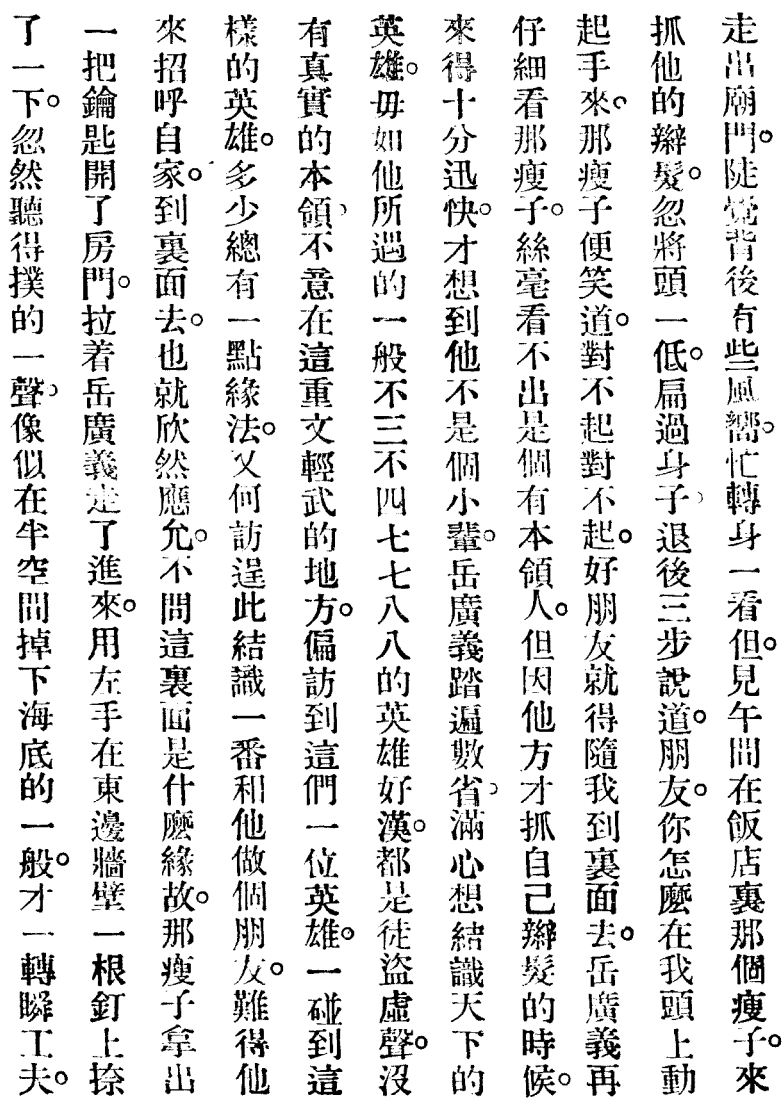 走出廟門。陡覺背後有些風響。忙轉身一看。但見午間在飯店裏那個瘦子。來
抓他的辮髮。忽將頭一低。扁過身子、退後三步說道。朋友。你怎麼在我頭上動
起手來。那瘦子便笑道。對不起對不起。好朋友就得隨我到裏面去。岳廣義再
仔細看那瘦子。絲毫看不出是個有本領人。但因他方才抓自己辮髮的時候。
來得十分迅快。才想到他不是個小輩。岳廣義踏遍數省、滿心想結識天下的
英雄。毋如他所遇的一般不三不四七七八八的英雄好漢。都是徒盜虛聲。沒
有真實的本領、不意在這重文輕武的地方。偏訪到這們一位英雄。一碰到這
樣的英雄。多少總有一點緣法。又何訪逞此結識一番和他做個朋友。難得他
來招呼自家。到裏面去。也就欣然應允。不問這裏面是什麼緣故。那瘦子拿出
一把鑰匙開了房門。拉着岳廣義走了進來。用左手在東邊牆壁一根釘上捺
了一下。忽然聽得撲的一聲。像似在半空間掉下海底的一般。才一轉瞬工夫。